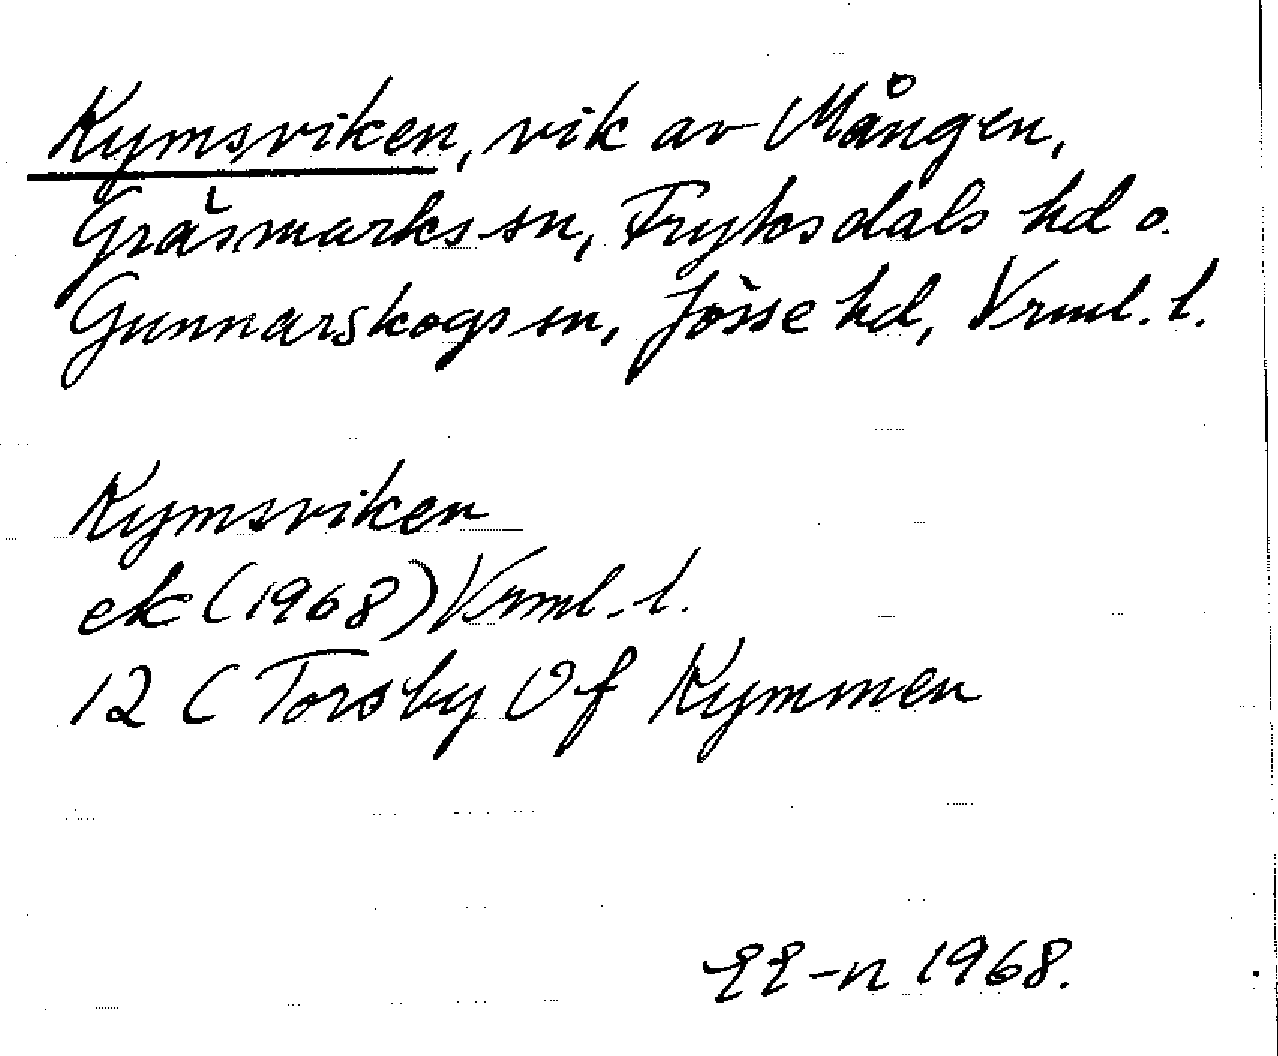 Kymsviken, vik av Mången,
Gräsmarks sn, Fryksdals hd o.
Gunnarskogs sn, Jösse hd, Vrml. l.
Kymsviken
ek (1968) Vrml. l.
12 C Torsby 0f Kymmen
EE-n 1968.